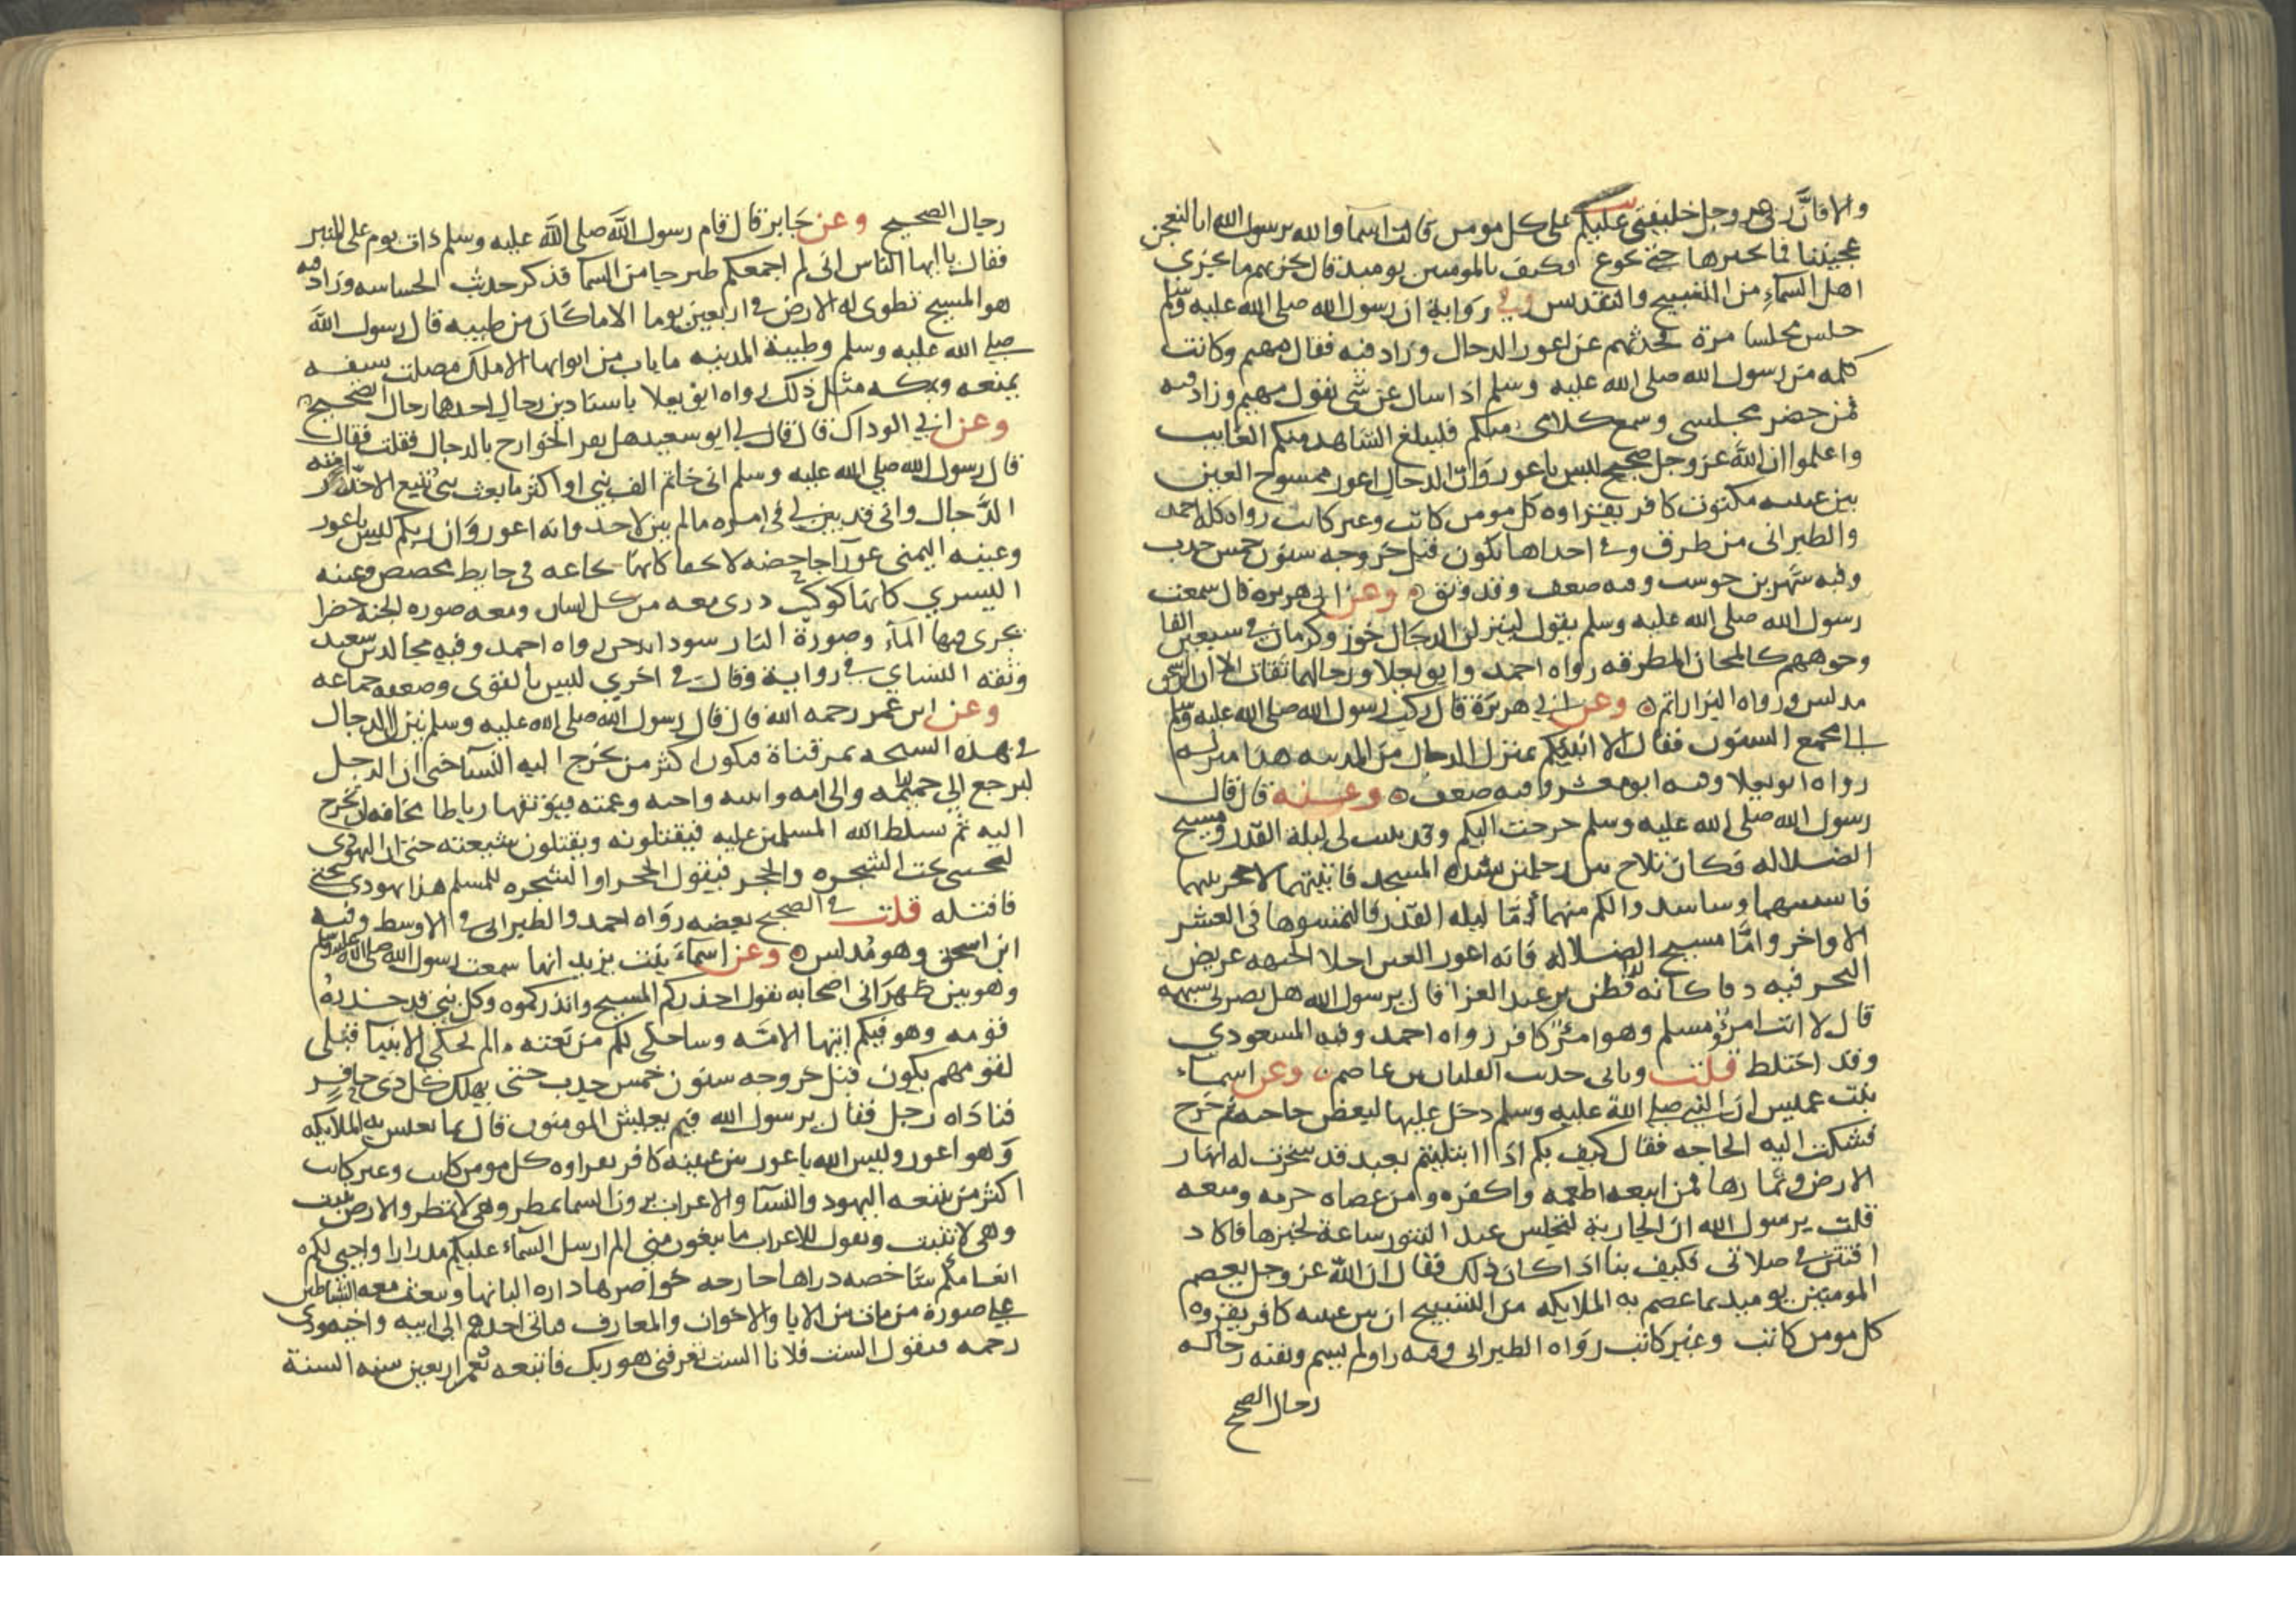 والا فان ربي عز وجل خليفتي عليكم على كل مومن قالت اسما والله يرسول الله انا لنعجن
عجيننا فما نخبزها حتى نجوع فكيف بالمومنين يوميد قال يجزيهم ما يجزي
اهل السماء من التسبيح والتقديس وفي رواية ان رسول الله صلى الله عليه وسلم
جلس مجلسا مرة يحدثهم عن اعور الدجال وزاد فيه فقال مهيم وكانت
كلمه من رسول الله صلى الله عليه وسلم اذا سال عن شي يقول مهيم وزاد فيه
فمن حضر مجلسي وسمع كلامي منكم فليبلغ الشاهد منكم الغايب
واعلموا ان الله عز وجل صحيح ليس باعور وان الدجال اعور ممسوح العين
بين عينيه مكتوب كافر يقراوه كل مومن كاتب وغير كاتب رواه كله احمد
والطبراني من طرق وفي احداها يكون قبل خروجه سنون خمس جدب
وفيه شهر بن حوشب وفيه ضعف وقد وثق وعن ابي هريرة قال سمعت
رسول الله صلى الله عليه وسلم يقول لينزلن الدجال خوز وكرمان في سبعين الفا
وجوههم كالمجان المطرقه رواه احمد وابو يعلا ورجالهما ثقات الا ان ابن اسحق
مدلس ورواه البزار اتم وعن ابي هريرة قال ركب رسول الله صلى الله عليه وسلم
الى مجمع السيول فقال الا انبيكم بمنزل الدجال من المدينه هذا منزله
رواه ابو يعلا وفيه ابو معشر وفيه ضعف وعنه قال قال
رسول الله صلى الله عليه وسلم خرجت اليكم وقد بينت لي ليلة القدر ومسيح
الضلاله فكان تلاح بين رجلين بسدة المسجد فاتيتهما لاحجز بينهما
فانسيتهما وساشدوا لكم منهما اما ليله القدر فالتمسوها في العشر
الاواخر واما مسيح الضلاله فانه اعور العين اجلا الجبهه عريض
النحر فيه دفا كانه قطن بن عبد العزا قال يرسول الله هل يضرني شبهه
قال لا انت امرؤ مسلم وهو امرؤ كافر رواه احمد وفيه المسعودي
وقد اختلط قلت وياتي حديث الفلتان بن عاصم وعن اسماء
بنت عميس ان النبي صلى الله عليه وسلم دخل عليها لبعض حاجته ثم خرج
فشكت اليه الحاجه فقال كيف بكم اذا ابتليتم بعبد قد سخرت له انهار
الارض وثمارها فمن اتبعه اطعمه واكفره ومن عصاه حرمه ومنعه
قلت يرسول الله ان الجارية لتجلس عند التنور ساعة لخبزها فاكاد
افتتن في صلاتي فكيف بنا اذا كان ذلك فقال ان الله عز وجل يعصم
المومنين يوميد بما عصم به الملايكه من التسبيح ان بين عينيه كافر يقروه
كل مومن كاتب وغير كاتب رواه الطبراني وفيه راو لم يسم وبقيه رجاله
رجال الصحيح
رجال الصحيح وعن جابر قال قام رسول الله صلى الله عليه وسلم ذات يوم على المنبر
فقال يا ايها الناس اني لم اجمعكم لخبر جا من السما فذكر حديث الجساسه وزاد فيه
هو المسيح تطوى له الارض في اربعين يوما الا ما كان من طيبه قال رسول الله
صلى الله عليه وسلم وطيبة المدينه ما باب من ابوابها الا ملك مصلت سيفه
يمنعه وبمكه مثل ذلك رواه ابو يعلا باسنادين رجال احدها رجال الصحيح
وعن ابي الوداك قال قال لي ابو سعيد هل يقر الخوارج بالدجال فقلت لا فقال
قال رسول الله صلى الله عليه وسلم اني خاتم الف نبي او اكثر ما بعث نبي يتبع الا حذر امته
الدجال واني قد بين لي في امره ما لم يبن لاحد وانه اعور وان ربكم ليس باعور
وعينه اليمنى عورا جاحضه لا تخفا كانها نخاعه في حايط مجصص وعينه
اليسري كانها كوكب دري معه من كل لسان ومعه صوره الجنة خضرا
يجرى فيها الماء وصورة النار سودا تدخن رواه احمد وفيه مجالد بن سعيد
وثقه النساي في رواية وقال في اخري ليس بالقوى وضعفه جماعه
وعن ابن عمر رحمه الله قال قال رسول الله صلى الله عليه وسلم ينزل الدجال
في هذه السبخه بمرقناة فيكون اكثر من يخرج اليه النسا حتى ان الرجل
ليرجع الى حميمه والى امه وابنته واخته وعمته فيوثقها رباطا مخافه ان تخرج
اليه ثم يسلط الله المسلمين عليه فيقتلونه ويقتلون شيعته حتى ان اليهودي
ليختبي تحت الشجره والحجر فيقول الحجر او الشجره للمسلم هذا يهودي تحتي
فاقتله قلت في الصحيح بعضه رواه احمد والطبراني في الاوسط وفيه
ابن اسحق وهو مدلس وعن اسماء بنت يزيد انها سمعت رسول الله صلى الله عليه وسلم
وهو بين ظهراني اصحابه يقول احذركم المسيح وانذركموه وكل نبي قد حذره
قومه وهو فيكم ايتها الامه وساحكي لكم من نعته ما لم يحكي الانبيا قبلي
لقومهم يكون قبل خروجه سنون خمس جدب حتى يهلك كل ذي حافر
فناداه رجل فقال يرسول الله فبم يعيش المومنون قال بما يعيش به الملايكه
وهو اعور وليس الله باعور بين عينيه كافر يقراوه كل مومن كاتب وغير كاتب
اكثر من يتبعه اليهود والنسا والاعراب يرون السما تمطر وهي لا تمطر والارض تنبت
وهي لا تنبت ويقول للاعراب ما تبغون مني الم ارسل السماء عليكم مدرارا واحيي لكم
انعامكم شاخصه دراها خارجه خواصرها داره البانها وتبعث معه الشياطين
على صورة من مات من الابا والاخوان والمعارف فياتي احدهم الى ابيه واخيه وذي
رحمه فيقول الست فلانا الست تعرفني هو ربك فاتبعه يعمر اربعين سنه السنة